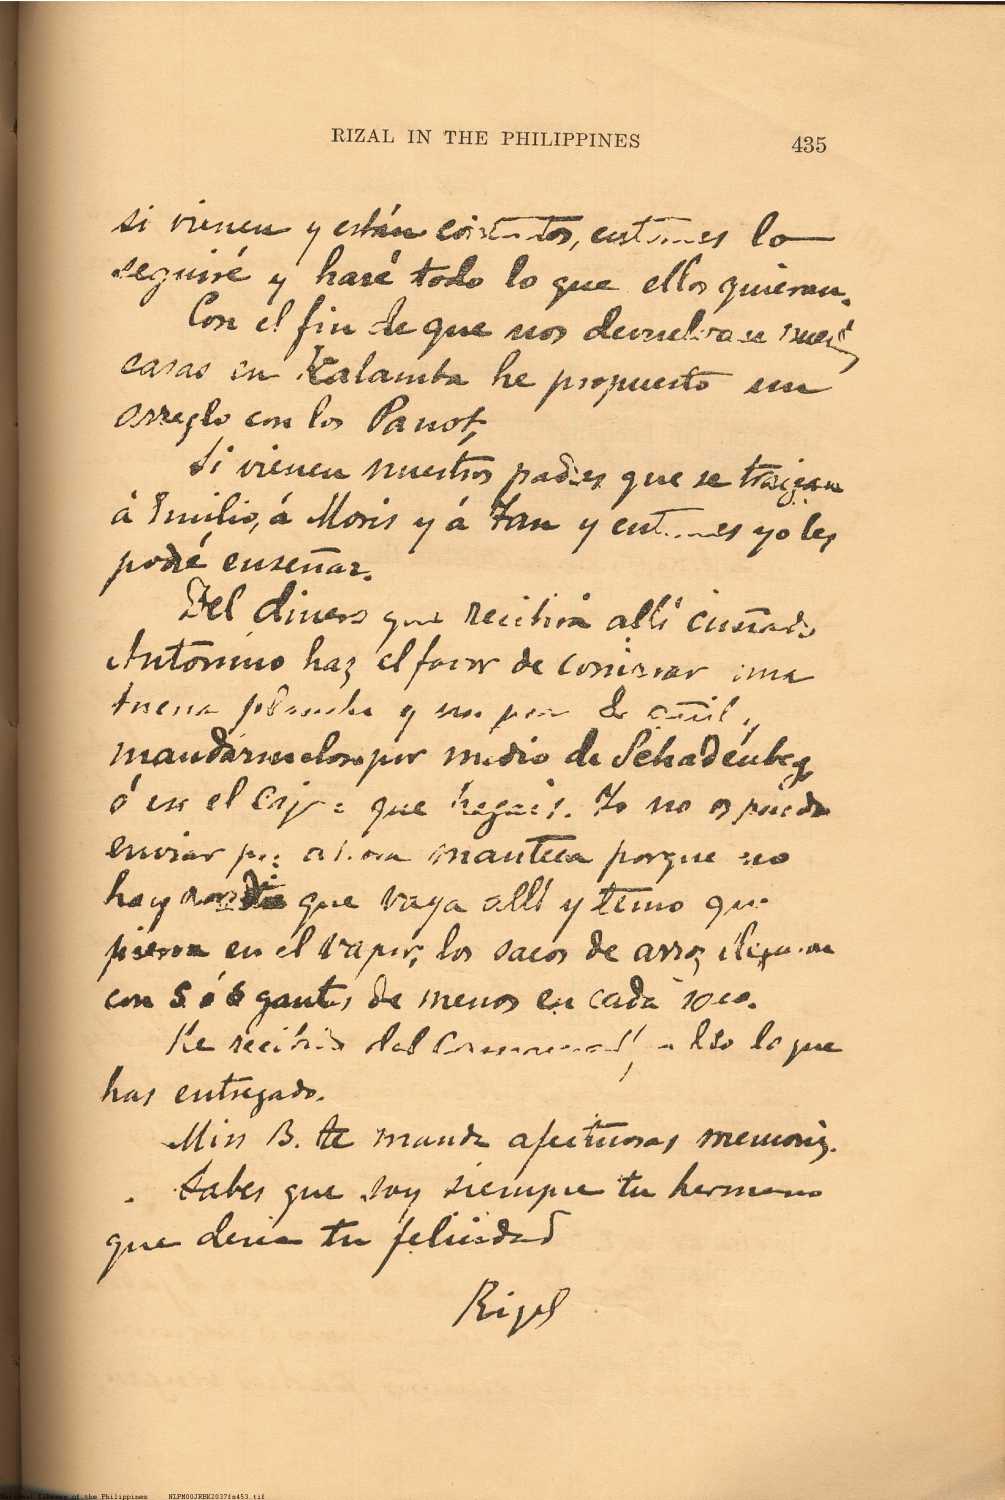 RIZAL IN THE PHILIPPINES 435
si vienen y están contentos, entonces lo
seguiré y haré todo lo que ellos quieran.
Con el fin de que nos devuelvan
casas en Kalamba he propuesto un
arreglo con los
Si vienen nuestros padres que se traigan
á Emilio, á Moris y á Tan y entonces yo les
podré enseñar.
Del dinero que recibirá allí cuñado
Antonino haz el favor de comprar una
buena plancha y un poco de añil y
mandármelos por medio de Schadenberg
ó en el que hagais. Yo no os puedo
enviar por ahora manteca porque no
hay que vaya allí y temo que
pierda en el vapor; los sacos de arroz llegaron
con 5 ó 6 gantas de menos en cada saco.
He recibido del lo que
has entregado.
Miss B. te manda afectuosas memorias.
Sabes que soy siempre tu hermano
que desea tu felicidad
Rizal
National Library of the Philippines NLPM00JRBK2037fs453.tif